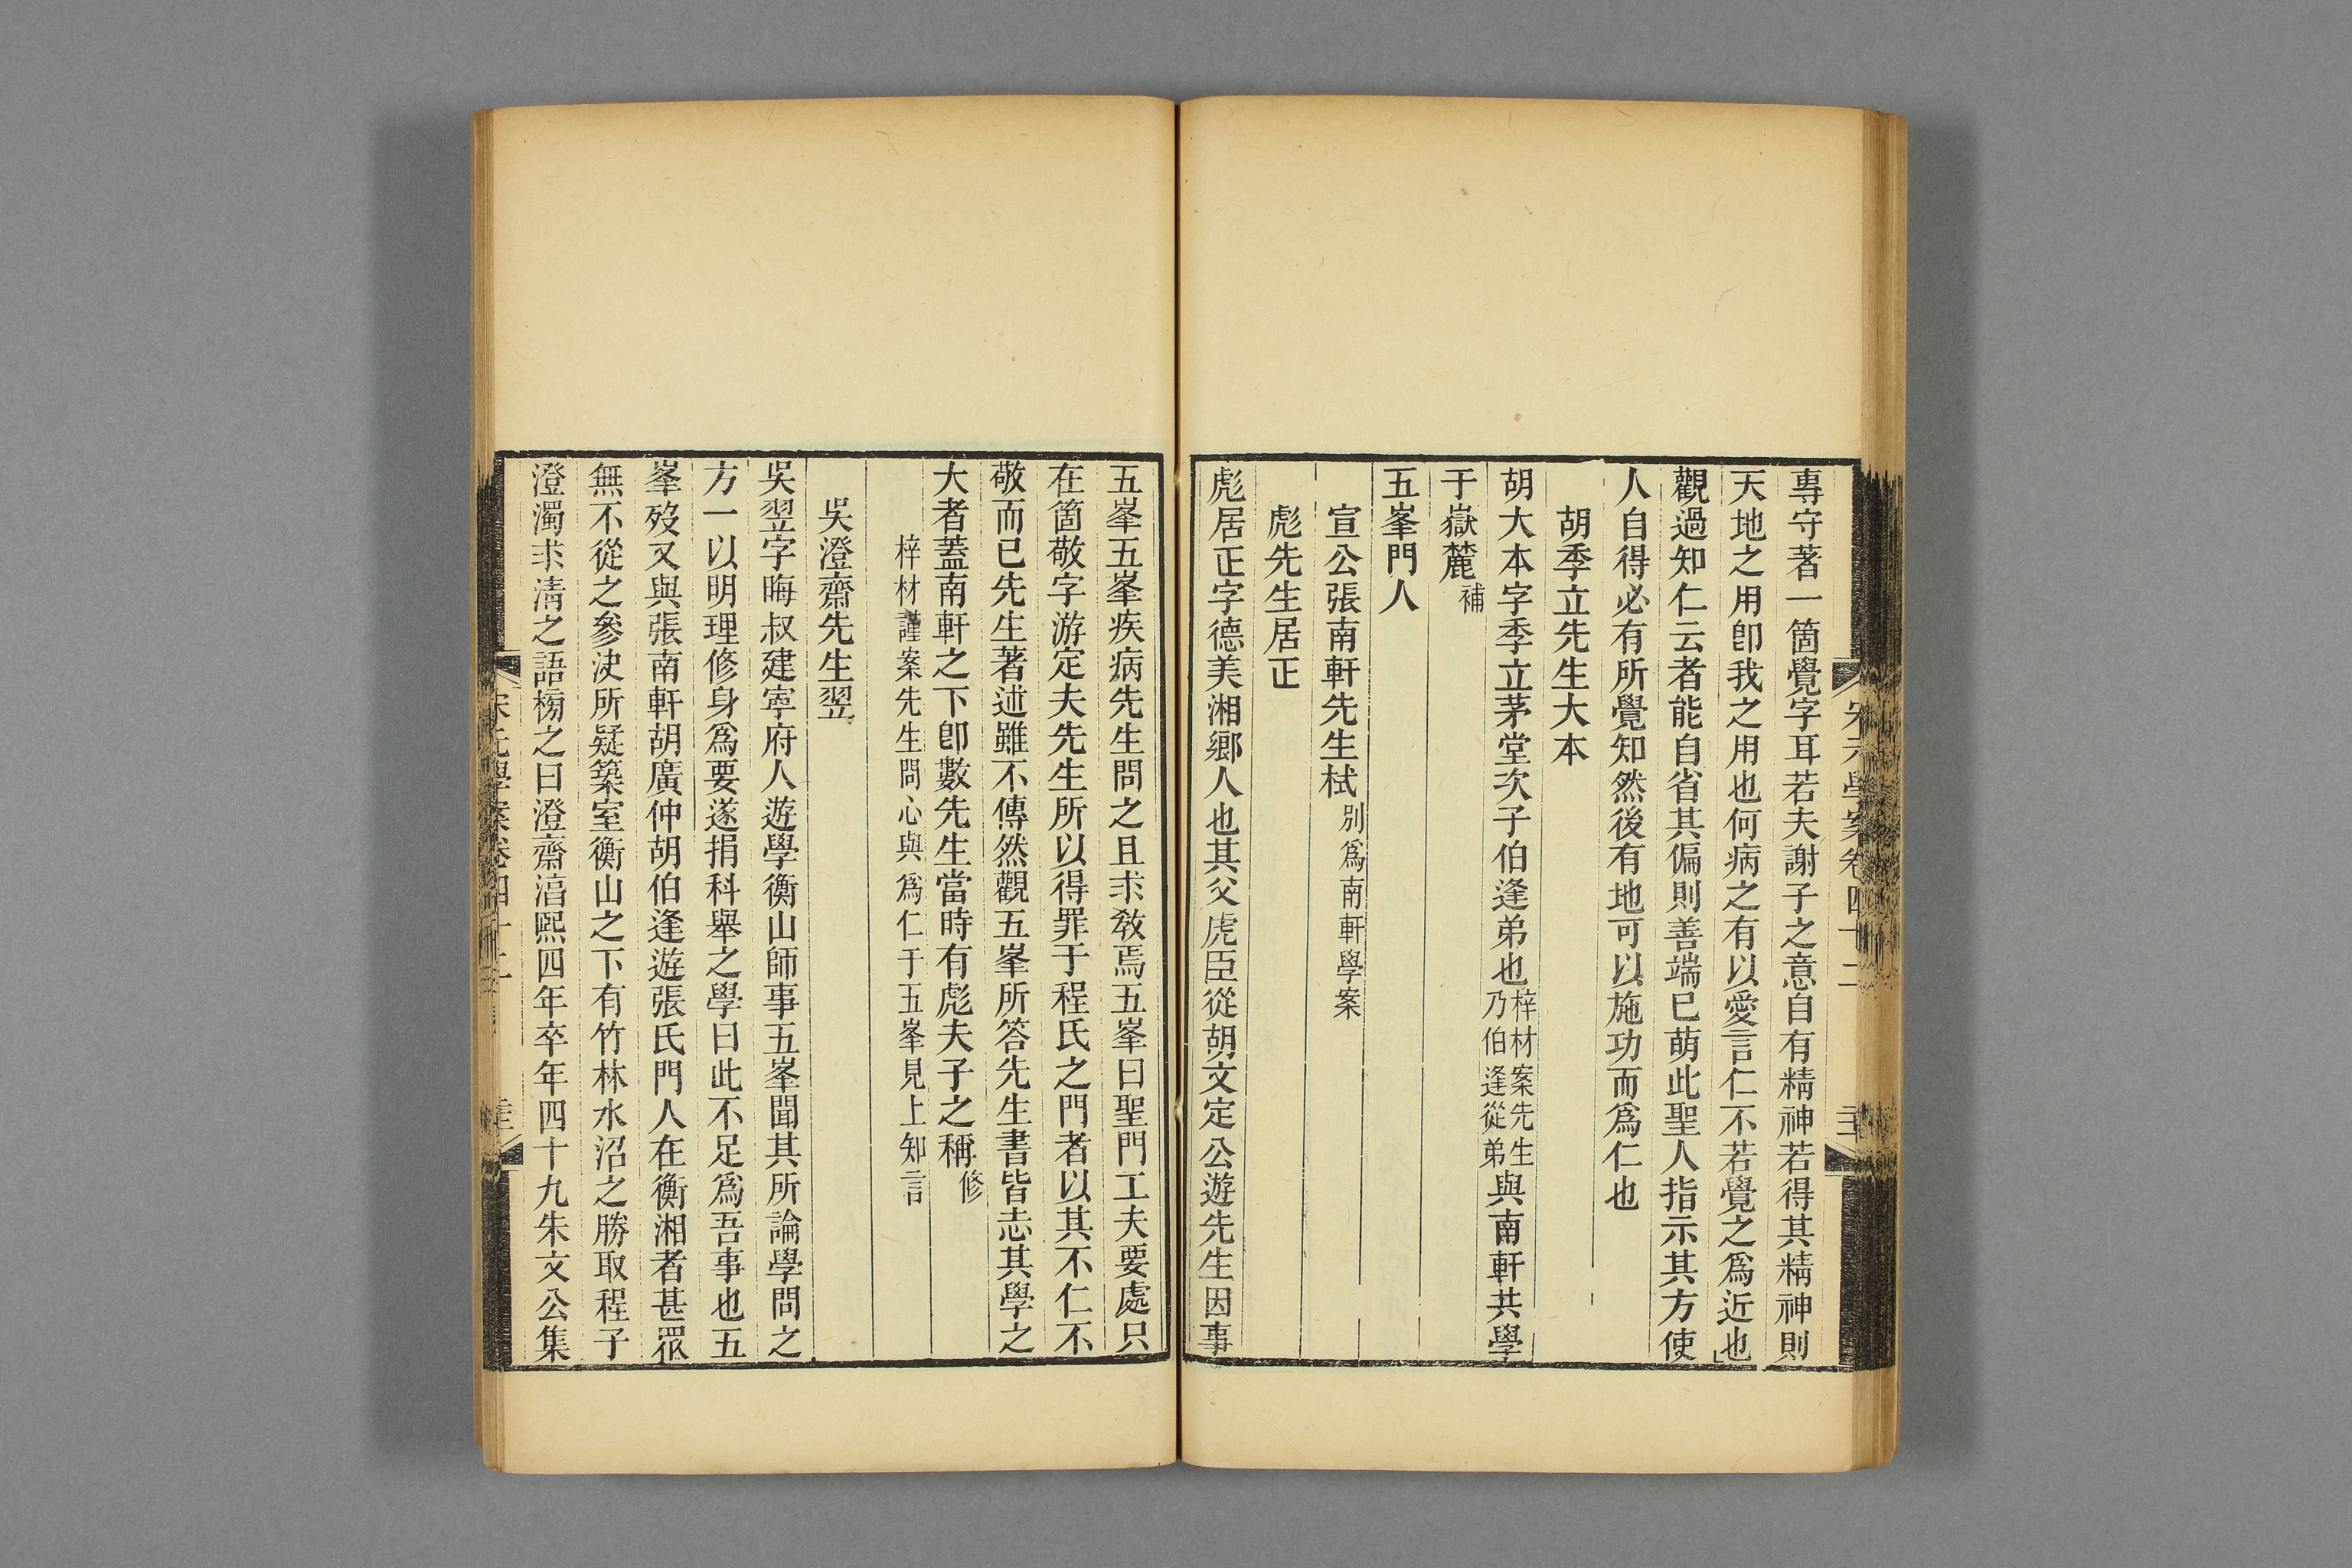 專守著一箇覺字耳若夫謝子之意自有精神若得其精神則
天地之用卽我之用也何病之有以愛言仁不若覺之爲近也
觀過知仁云者能自省其偏則善端已萌此聖人指示其方使
人自得必有所覺知然後有地可以施功而爲仁也
胡季立先生大本
胡大本字季立茅堂次子伯逢弟也梓材案先生乃伯逢從弟與南軒共學
于嶽麓補
五峯門人
宣公張南軒先生栻別爲南軒學案
彪先生居正
彪居正字德美湘鄉人也其父虎臣從胡文定公遊先生因事
五峯五峯疾病先生問之且求敎焉五峯曰聖門工夫要處只
在箇敬字游定夫先生所以得罪于程氏之門者以其不仁不
敬而已先生著述雖不傳然觀五峯所答先生書皆志其學之
大者蓋南軒之下卽數先生當時有彪夫子之稱修
梓材謹案先生問心與爲仁于五峯見上知言
吳澄齋先生翌
吳翌字晦叔建寧府人遊學衡山師事五峯聞其所論學問之
方一以明理修身爲要遂捐科舉之學曰此不足爲吾事也五
峯歿又與張南軒胡廣仲胡伯逢遊張氏門人在衡湘者甚眾
無不從之參決所疑築室衡山之下有竹林水沼之勝取程子
澄濁求清之語榜之曰澄齋淳熙四年卒年四十九朱文公集
宋元學案卷四十二